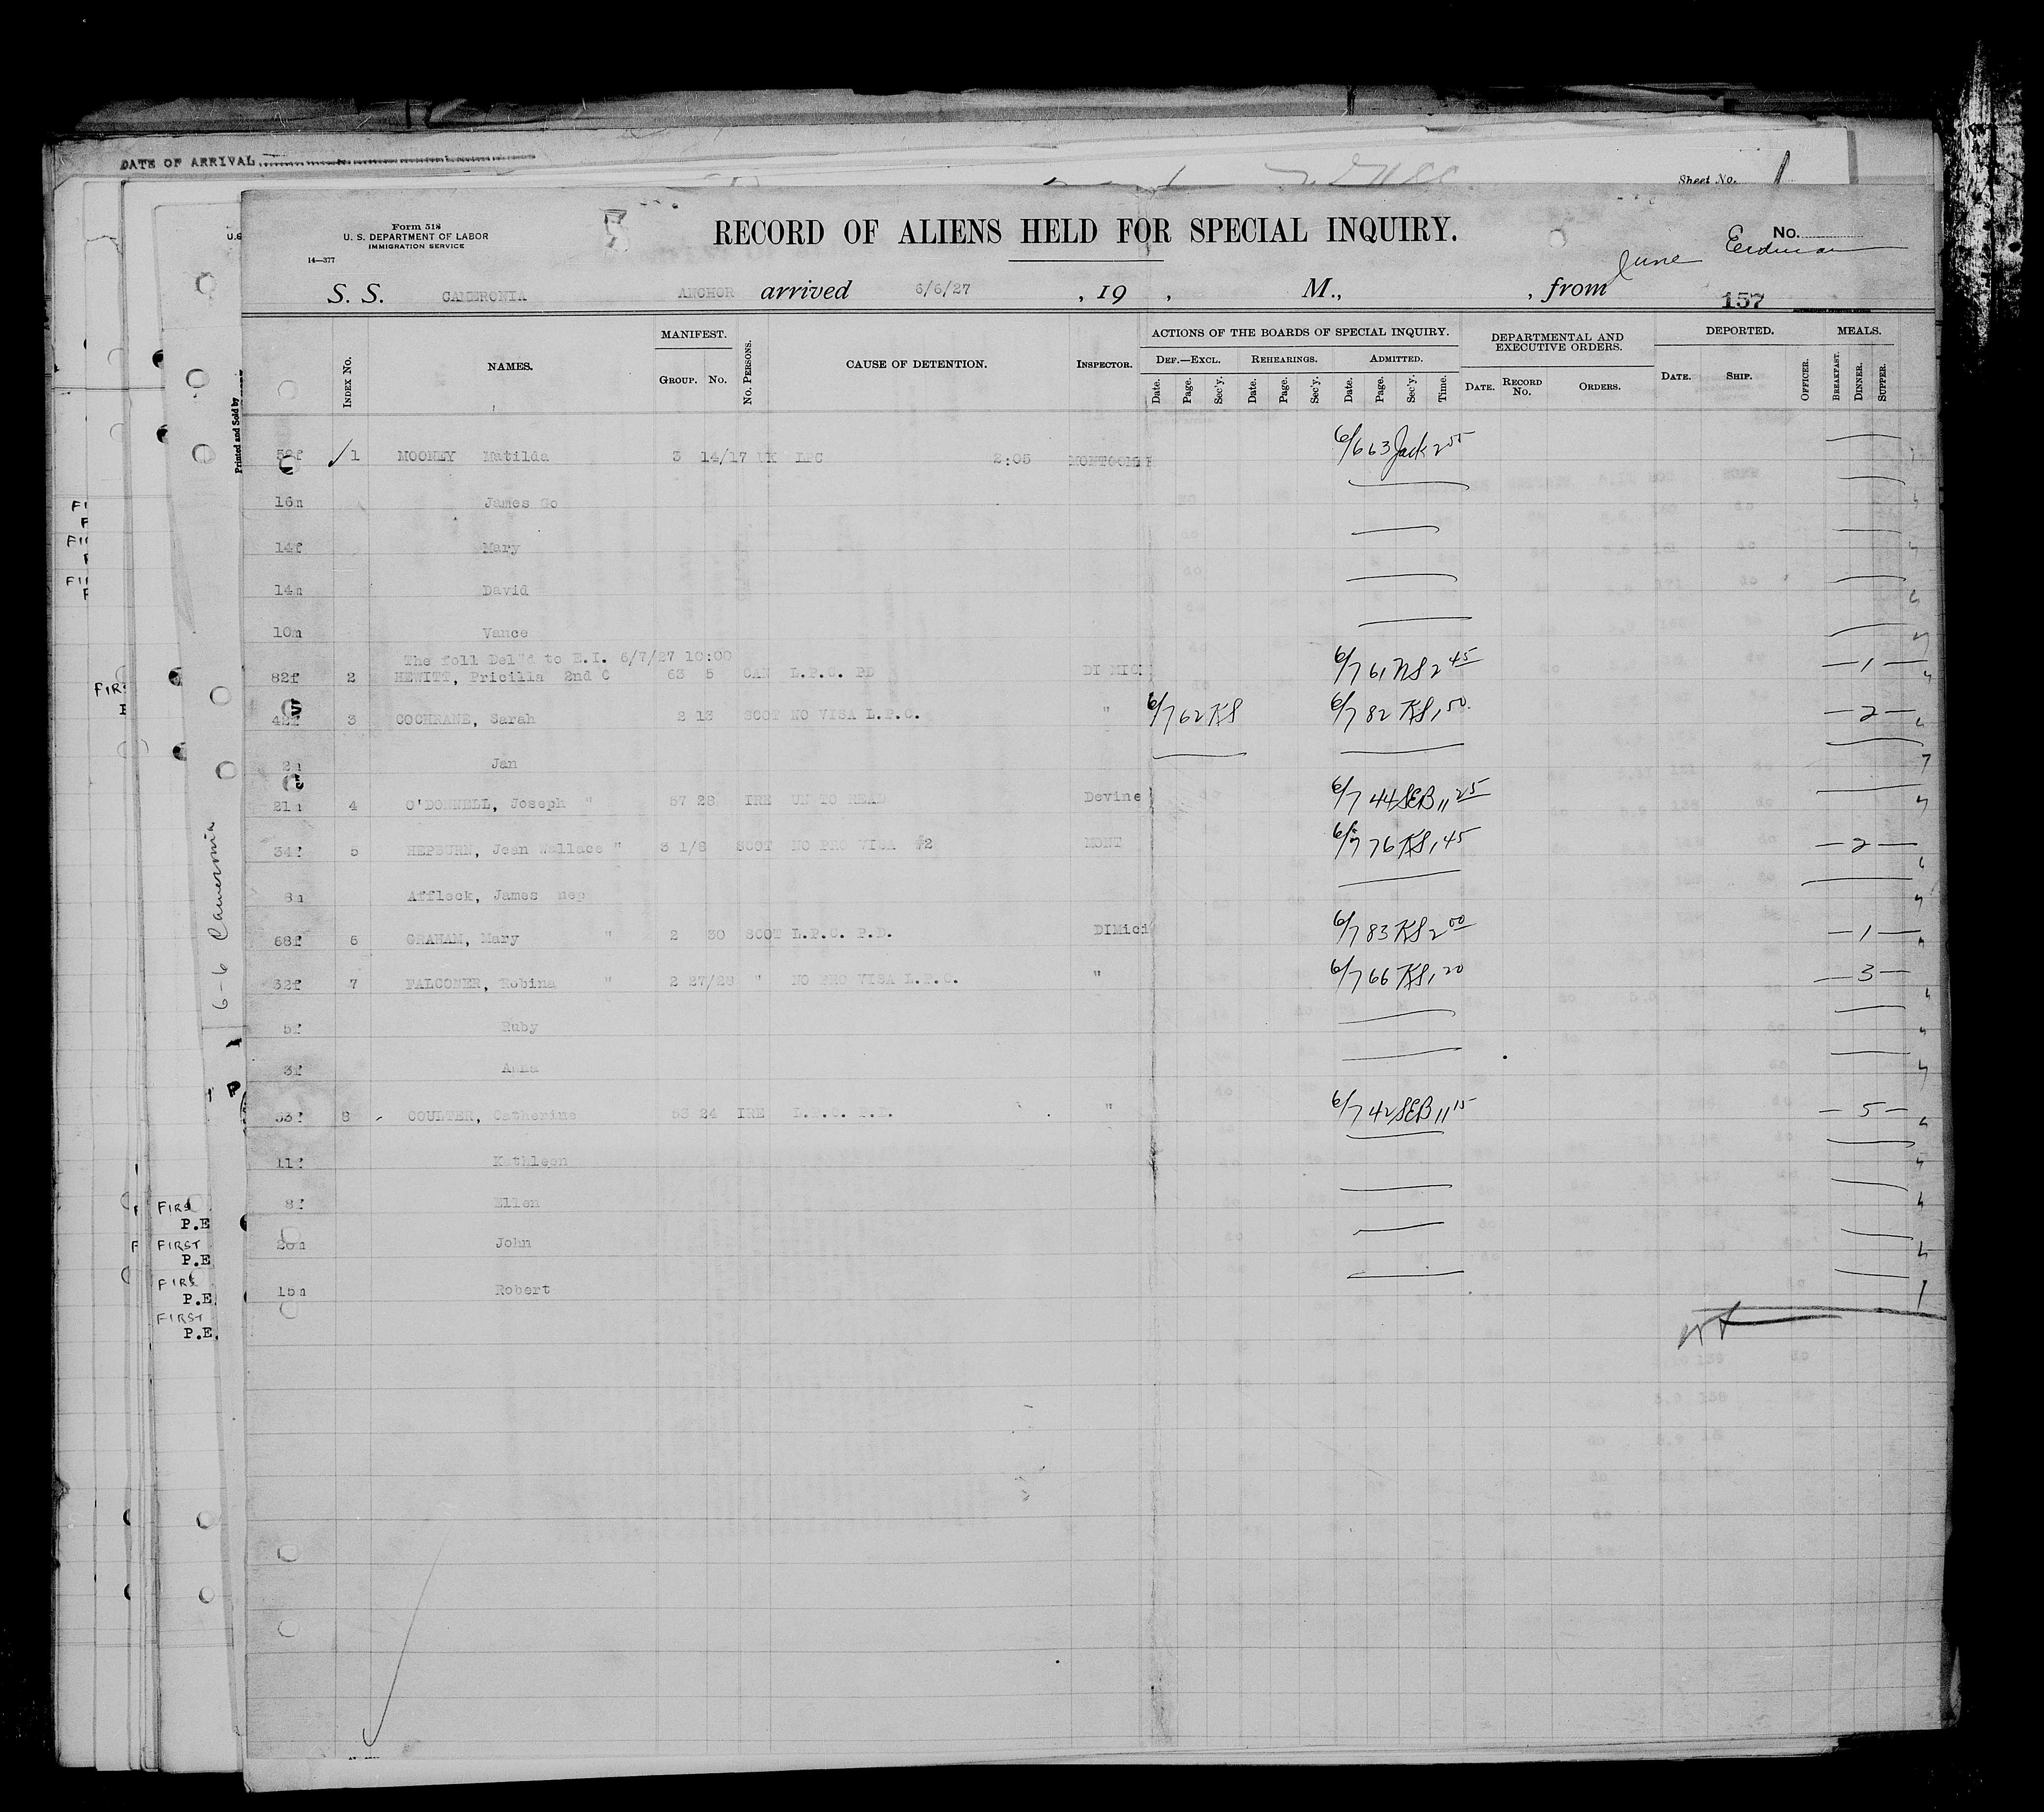 DATE OF ARRIVAL
Sheet No. 1
Form 518
U. S. DEPARTMENT OF LABOR
IMMIGRATION SERVICE
14—377
RECORD OF ALIENS HELD FOR SPECIAL INQUIRY.
No.
June Erdman
S. S. CAMERONIA ANCHOR arrived 6/6/27 , 19 , M., , from
157
Index No. NAMES. MANIFEST. No. Persons. CAUSE OF DETENTION. Inspector. ACTIONS OF THE BOARDS OF SPECIAL INQUIRY. DEPARTMENTAL AND EXECUTIVE ORDERS. DEPORTED. MEALS.
Group. No. Def.—Excl. Rehearings. Admitted.
Date. Page. Sec'y. Date. Page. Sec'y. Date. Page. Sec'y. Time. Date. Record No. Orders. Date. Ship. Officer. Breakfast. Dinner. Supper.
1 MOONEY Matilda 3 14/17 UK LPC 2:05 6/6 63 Jack 2
16m James Go
14f Mary
14m David
10m Vance
The foll Del"d to E.I. 6/7/27 10:00
82f 2 HEWITT, Pricilla 2nd C 63 5 CAN L.P.C. PD DI MICI 6/7 61 NS 2 45 1
42f 3 COCHRANE, Sarah 2 13 SCOT NO VISA L.P.C. " 6/7 62 KS 6/7 82 KS 1 50 2
Jan
21m 4 O'DONNELL, Joseph " 57 28 IRE UN TO READ Devine 6/7 44 SEB 11 25
34f 5 HEPBURN, Jean Wallace " 3 1/8 SCOT NO PRO VISA #2 MONT 76 KS 1 45 2
8m Affleck, James nep
68f 6 GRAHAM, Mary " 2 30 SCOT L.P.C. P.D. DIMici 6/7 83 KS 2 00 1
32f 7 FALCONER, Robina " 2 27/28 " NO PRO VISA L.P.C. " 6/7 66 KS 1 20 3
5f Ruby
3f Anna
53f 8 COULTER, Catherine 53 24 IRE L.P.C. P.D. " 6/7 42 SEB 11 15 5
11f Kathleen
8f Ellen
John
15m Robert
Printed and Sold by
6-6 Cameronia
FIRST
P.E
FIRST
P.E
FIRS
P.E.
FIRST
P.E.